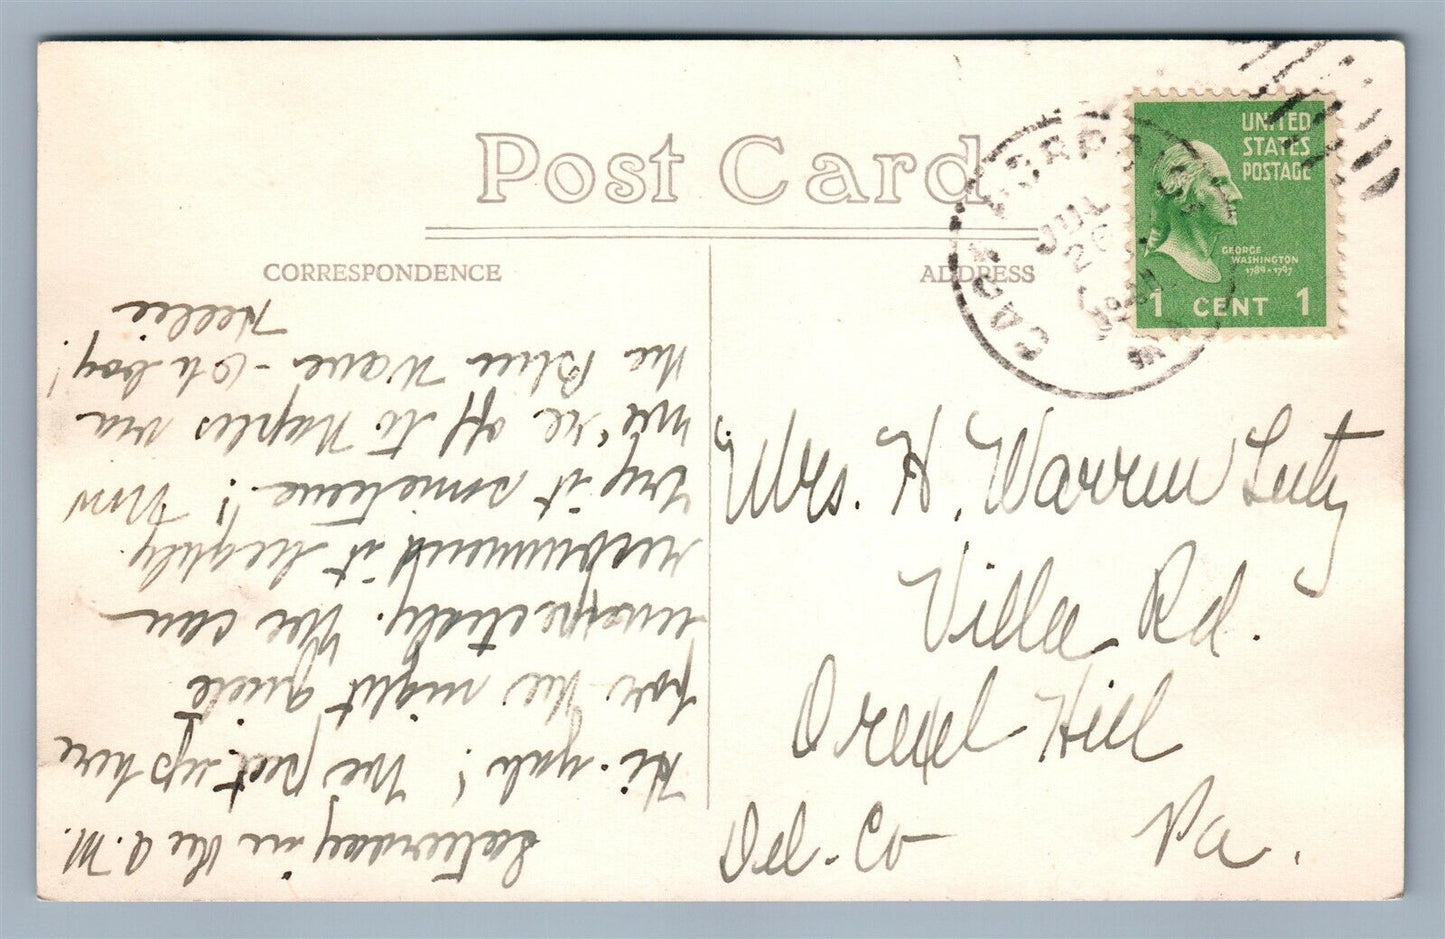 Post Card
CORRESPONDENCE
ADDRESS
UNITED
STATES
POSTAGE
GEORGE
WASHINGTON
1789-1797
1 CENT 1
JUL
26
Saturday in the A.M.
Hi-yah! We put up here
for the night quite
unexpectedly. We can
recommend it highly.
Try it sometime!! Now
we're off to Naples via
the Blue Wave - Oh boy!
Nellie
Mrs. H. Warren Luty
Villa Rd.
Drexel Hill
Del. Co Pa.